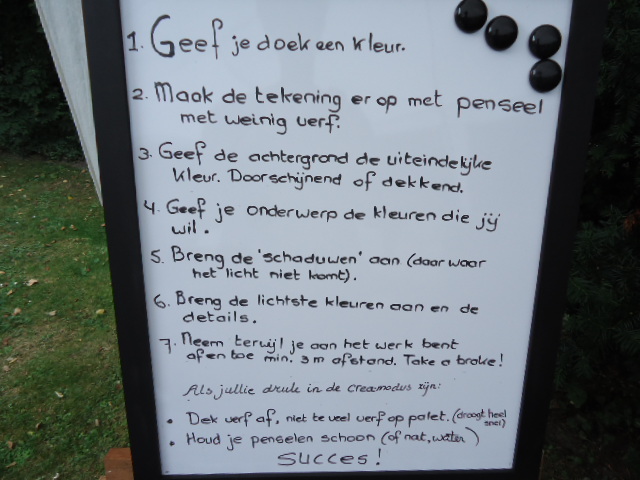 1. Geef je doek een kleur.
2. Maak de tekening er op met penseel
met weinig verf.
3. Geef de achtergrond de uiteindelijke
kleur. Doorschijnend of dekkend.
4. Geef je onderwerp de kleuren die jij
wil.
5. Breng de 'schaduwen' aan (daar waar
het licht niet komt).
6. Breng de lichtste kleuren aan en de
details.
7. Neem terwijl je aan het werk bent
af en toe min. 3m afstand. Take a brake!
Als jullie druk in de creamodus zijn:
• Dek verf af, niet te veel verf op palet. (droogt heel
snel)
• Houd je penselen schoon (of nat, water)
Succes!